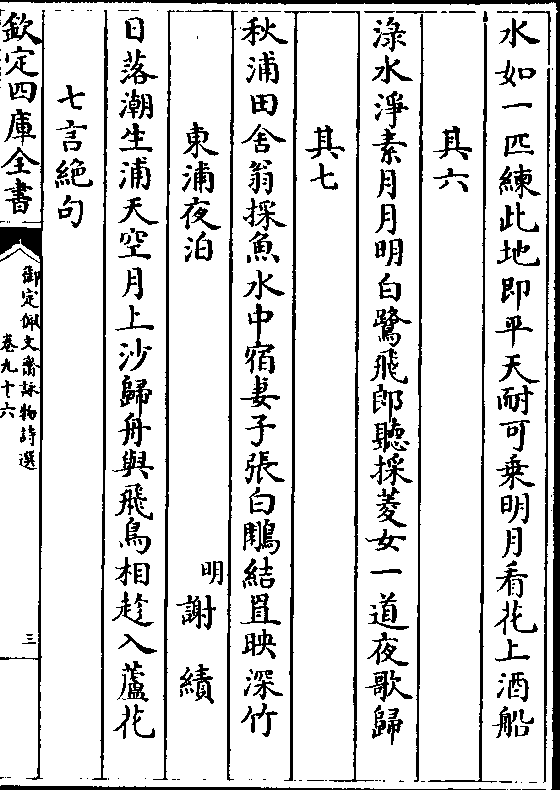 水如一匹練此地即平天耐可乗明月看花上酒船
其六
渌水淨素月月明白鷺飛郎聽採菱女一道夜歌歸
其七
秋浦田舍翁採魚水中宿妻子張白鷴結罝映深竹
東浦夜泊
明謝績
日落潮生浦天空月上沙歸舟與飛鳥相趁入蘆花
七言絶句
欽定四庫全書
御定佩文齋詠物詩選
卷九十六
三